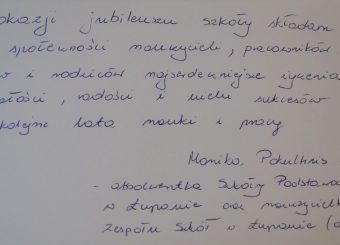 okazji jubileuszu szkoły składam
społeczności nauczycieli, pracowników
w i rodziców najserdeczniejsze życzenia
radości i wielu sukcesów
kolejne lata nauki i pracy
Monika
- absolwentka Szkoły Podstawo
w Łupawie oraz nauczyciel
Zespołu Szkół w Łupawie (o